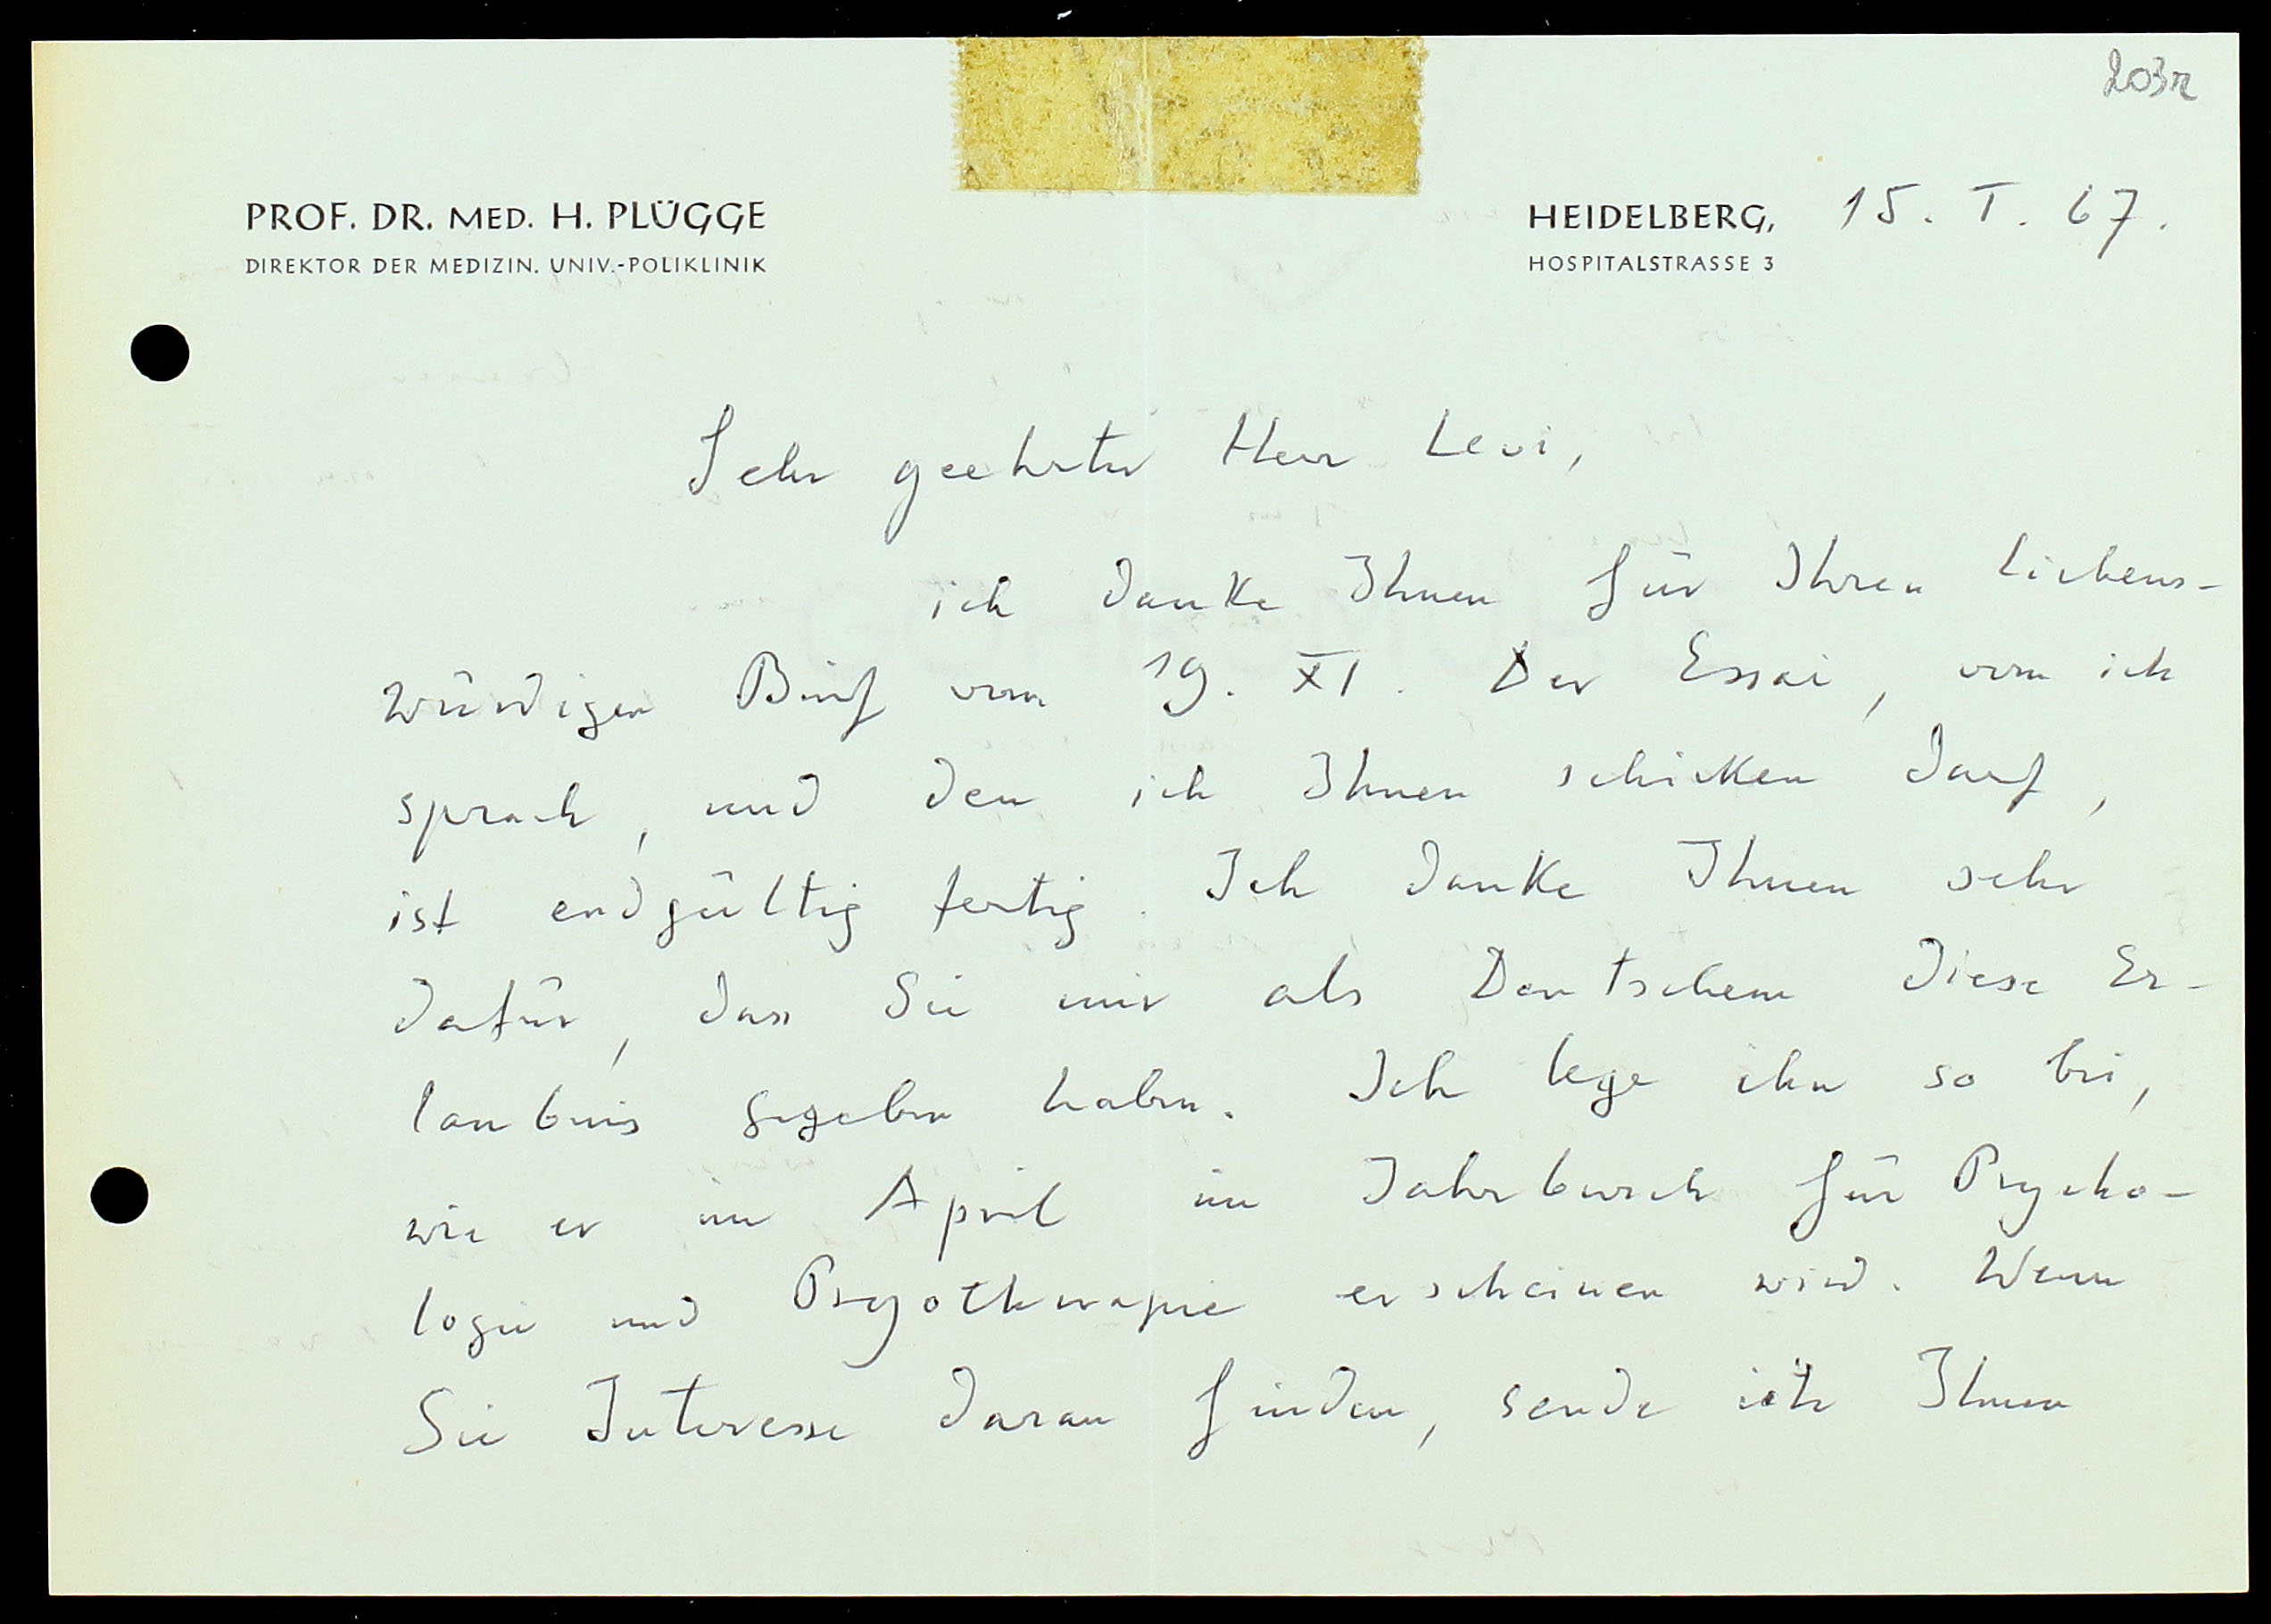 203r
PROF. DR. MED. H. PLÜGGE
DIREKTOR DER MEDIZIN. UNIV.-POLIKLINIK
HEIDELBERG, 15. I. 67.
HOSPITALSTRASSE 3
Sehr geehrter Herr Levi,
ich danke Ihnen für Ihren liebens-
würdigen Brief vom 19. XI. Der Essai, vom ich
sprach, und den ich Ihnen schicken darf,
ist endgültig fertig. Ich danke Ihnen sehr
dafür, dass Sie mir als Deutschem diese Er-
laubnis gegeben haben. Ich lege ihn so bei,
wie er im April im Jahrbuch für Psycho-
logie und Psychotherapie erscheinen wird. Wenn
Sie Interesse daran finden, sende ich Ihnen